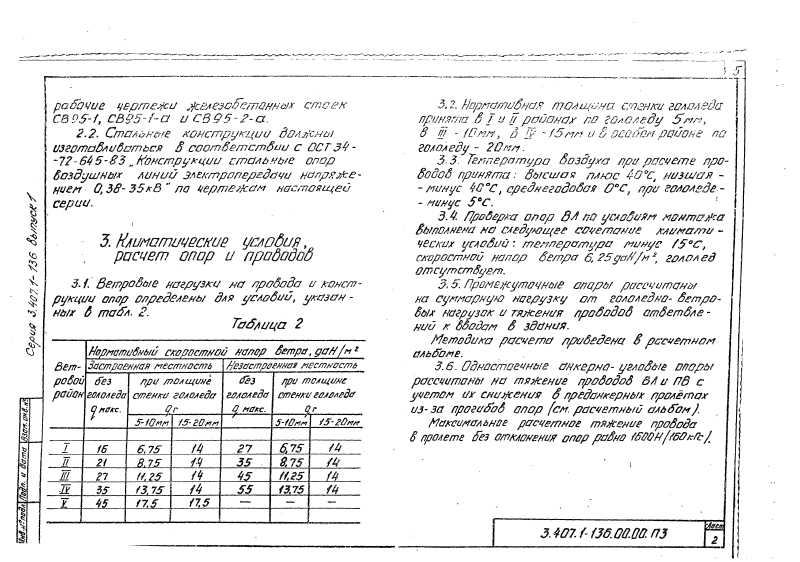 5
рабочие чертежи железобетонных стоек
СВ95-1, СВ95-1-а и СВ95-2-а.
2.2. Стальные конструкции должны
изготавливаться в соответствии с ОСТ 34-
-72-645-83 „Конструкции стальные опор
воздушных линий электропередачи напряже-
нием 0,38-35кВ" по чертежам настоящей
серии.
3. Климатические условия,
расчет опор и проводов
3.1. Ветровые нагрузки на провода и конст-
рукции опор определены для условий, указан-
ных в табл. 2.
Таблица 2
Нормативный скоростной напор ветра, даН/м²
Вет- Застроенная местность Незастроенная местность
ровой без при толщине без при толщине
район гололеда стенки гололеда гололеда стенки гололеда
q макс. qг q макс. qг
5-10мм 15-20мм 5-10мм 15-20мм
I 16 6,75 14 27 6,75 14
II 21 8,75 14 35 8,75 14
III 27 11,25 14 45 11,25 14
IV 35 13,75 14 55 13,75 14
V 45 17,5 17,5 — — —
3.2. Нормативная толщина стенки гололеда
принята в I и II районах по гололеду 5мм,
в III - 10мм, в IV - 15мм и в особом районе по
гололеду - 20мм.
3.3. Температура воздуха при расчете про-
водов принята: высшая плюс 40°С, низшая -
- минус 40°С, среднегодовая 0°С, при гололеде -
- минус 5°С.
3.4. Проверка опор ВЛ по условиям монтажа
выполнена на следующее сочетание климати-
ческих условий: температура минус 15°С,
скоростной напор ветра 6,25 даН/м², гололед
отсутствует.
3.5. Промежуточные опоры рассчитаны
на суммарную нагрузку от гололедно-ветро-
вых нагрузок и тяжения проводов ответвле-
ний к вводам в здания.
Методика расчета приведена в расчетном
альбоме.
3.6. Одностоечные анкерно-угловые опоры
рассчитаны на тяжение проводов ВЛ и ПВ с
учетом их снижения в преданкерных пролётах
из-за прогибов опор (см. расчетный альбом).
Максимальное расчетное тяжение провода
в пролете без отклонения опор равно 1600Н(160кгс).
3.407.1-136.00.00.ПЗ
Лист
2
Серия 3.407.1-136 выпуск 1
Взам. инв. №
Подп. и дата
Инв. № подл.